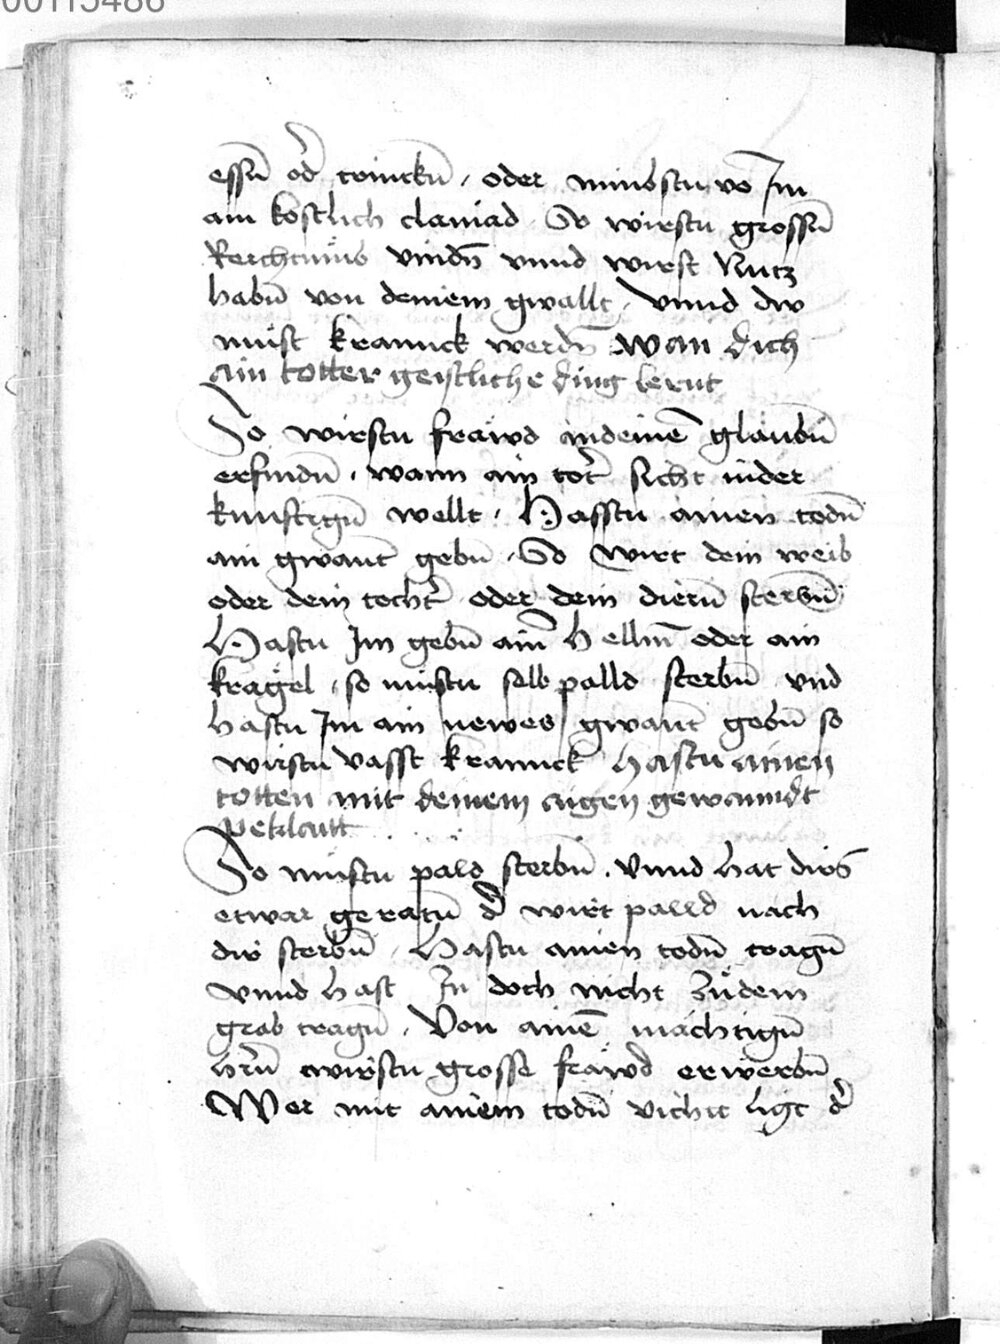 00115486
essñ od̾ trinckñ, oder nimbstu vō Im
ain köstlich claniad. So wirstu grossñ
Rerchtnus vindñ vnnd wirst Nutz
habñ von deinem gwallt, vnnd dw
must krannck werdñ Wan dich
ain totter geistliche ding lernt
So wirstu fräwd indeinē glaubñ
erfindñ, wann ain tot̾ sicht inder
kunftigñ wellt, Hasstu ainen todñ
ain gwant gebñ, So wirt dein weib
oder dein tocht̾ oder dein diern sterbñ
Hastu Im gebñ ain Hellm̄ oder ain
kragel, so mustu selb palld sterbñ vnd
hastu Im ain newes gwant gebñ so
wirstu vasst kranck hastu ainen
totten mit deinem aigen gewanndt
peklaitt
So mustu pald sterbñ. Vnnd hat dirs
etwar geratñ d̾ wirt palld nach
dir sterbñ, Hastu ainen todñ tragñ
vnnd hast In doch nicht zudem
grab tragñ, Von ainē mächtigñ
hrñ wirstu grosse fräwd erwerbñ
Wer mit ainem todñ vicht ligt d̾